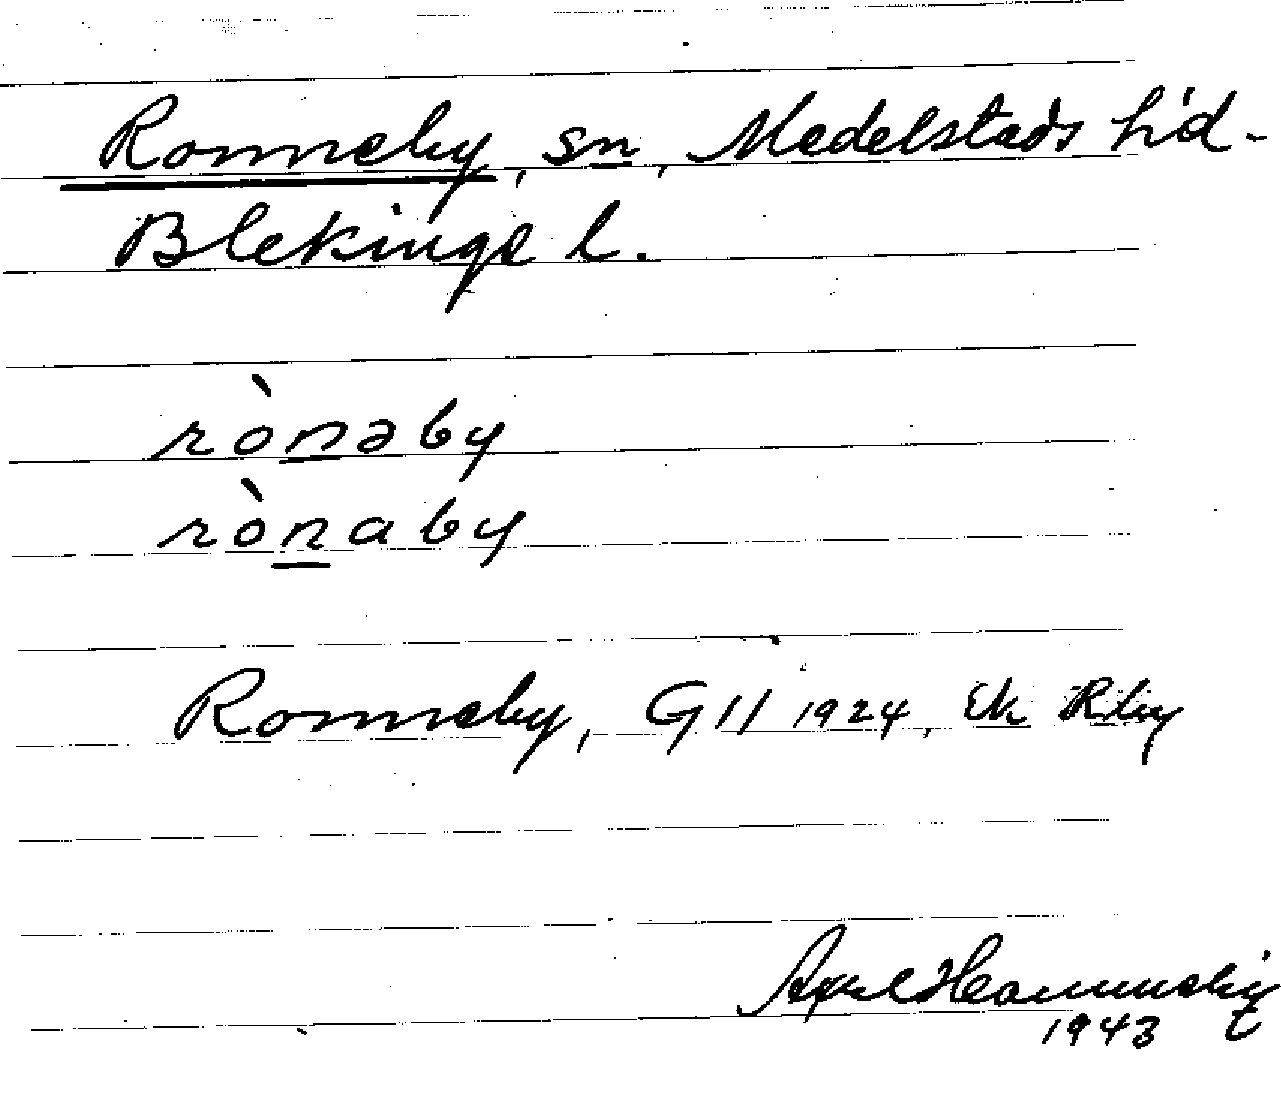 Ronneby, sn, Medelstads h'd-
Blekinge l.
rònəby
rònaby
Ronneby, G11 1924, Ek Rby
Axel
1943